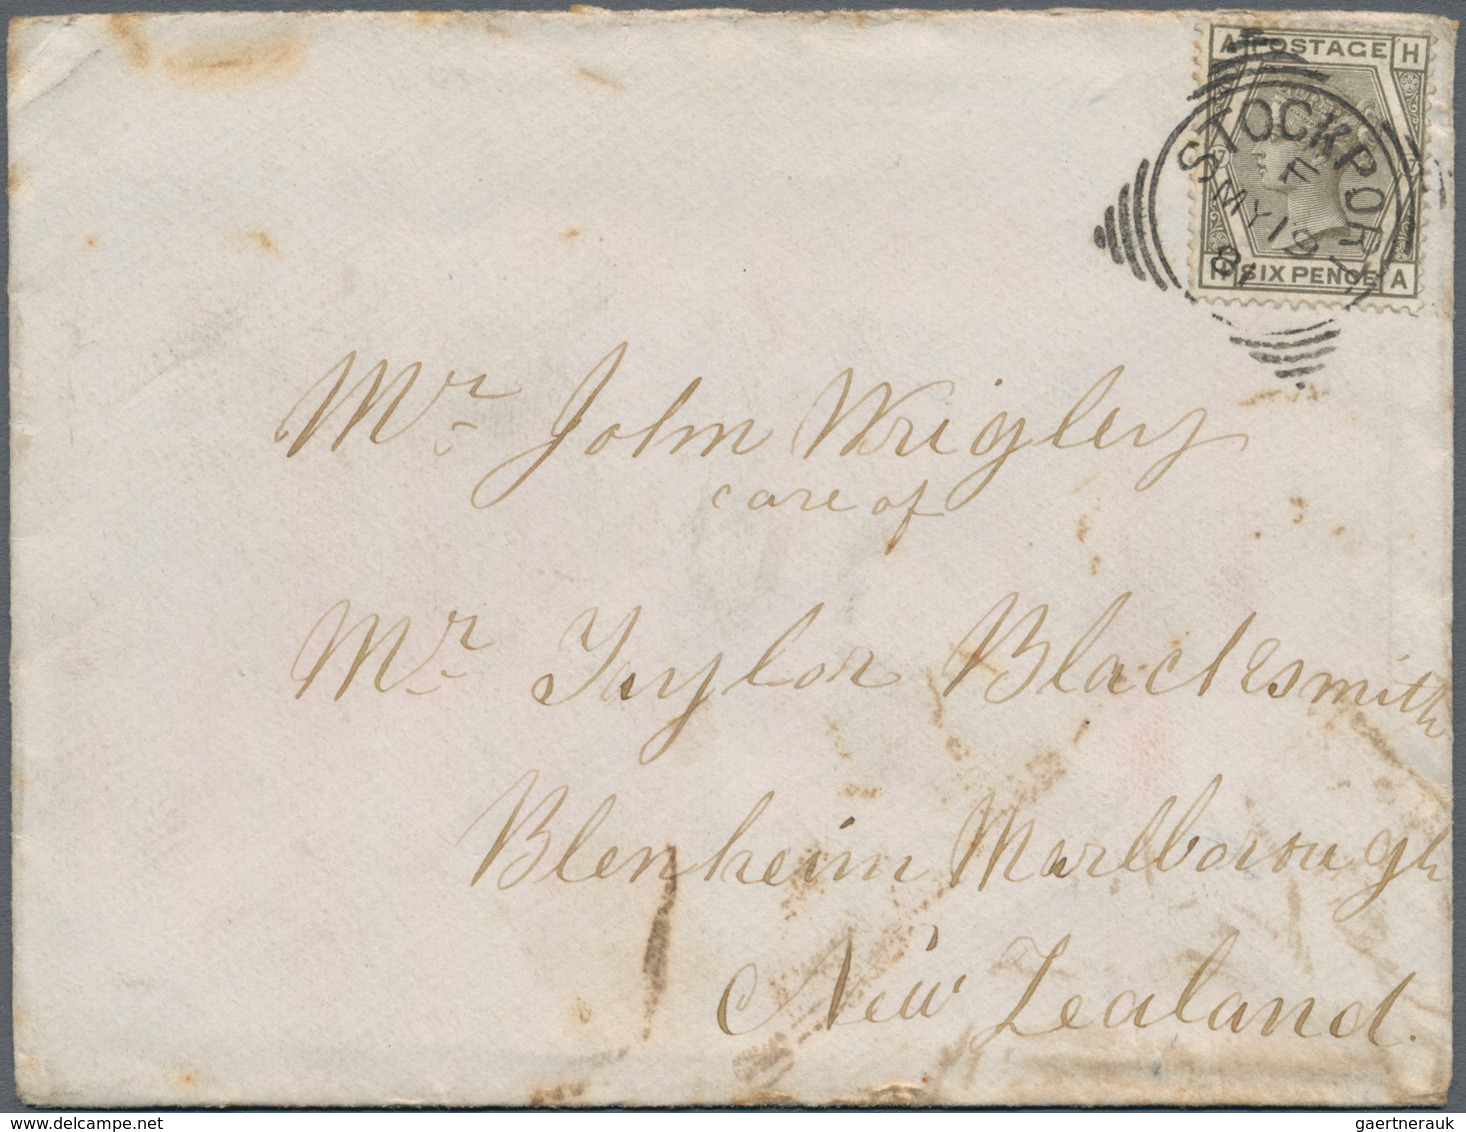 A POSTAGE H
STOCKPORT
MY 19
81
H SIX PENCE A
Mr John Wrigley
care of
Mr Taylor Blacksmith
Blenheim Marlborough
New Zealand.
gaertnerauk